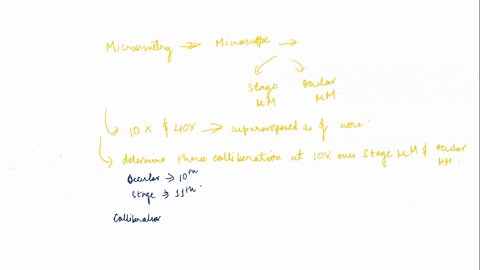 Micrometry → Microscope →
Stage Ocular
μM μM.
10x & 40x → superimposed so & none.
determine three calliberation at 10x over stage μM & Ocular μM.
Ocular → 10th
Stage → 11th.
Calliberation